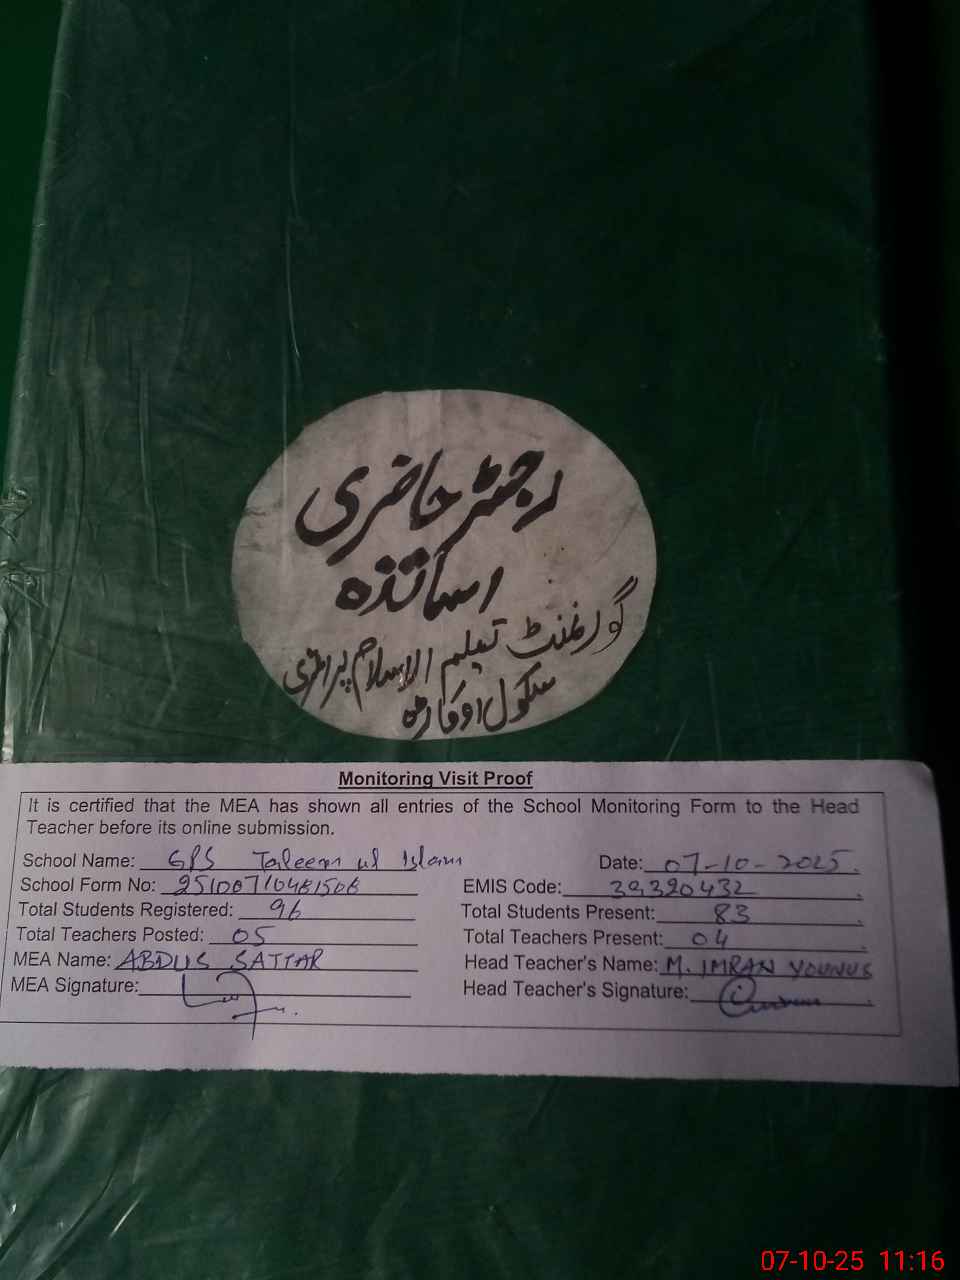 رجسٹر حاضری
اساتذہ
گورنمنٹ تعلیم الاسلام پرائمری
سکول اوکاڑہ
Monitoring Visit Proof
It is certified that the MEA has shown all entries of the School Monitoring Form to the Head
Teacher before its online submission.
School Name: GPS Taleem ul Islam Date: 07-10-2025.
School Form No: 25100710481508 EMIS Code: 39320432
Total Students Registered: 96 Total Students Present: 83
Total Teachers Posted: 05 Total Teachers Present: 04
MEA Name: ABDUS SATTAR Head Teacher's Name: M. IMRAN YOUNUS
MEA Signature: Head Teacher's Signature:
07-10-25 11:16